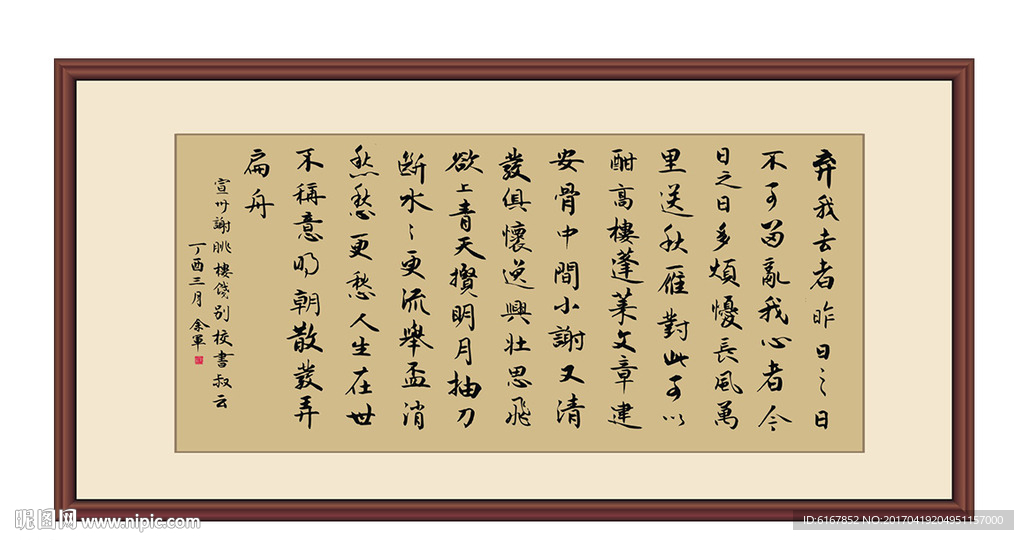 弃我去者昨日之日
不可留亂我心者今
日之日多煩懮長風萬
里送秋雁對此可以
酣高樓蓬萊文章建
安骨中間小謝又清
發俱懷逸興壯思飛
欲上青天攬明月抽刀
斷水々更流舉盃消
愁愁更愁人生在世
不稱意明朝散發弄
扁舟
宣州謝朓樓餞别校書叔云
丁酉三月 余軍
昵图网 www.nipic.com
ID:6167852 NO:20170419204951157000